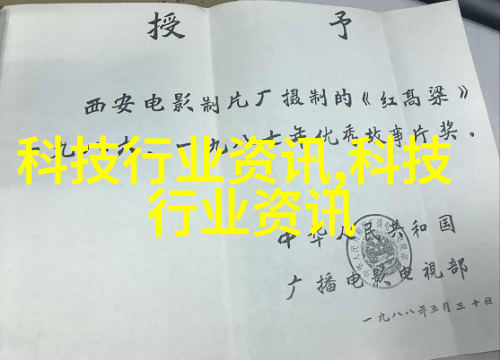 授 予
西安电影制片厂摄制的《红高粱》
一九八六、一九八七年优秀故事片奖。
科技行业资讯,科技
行业资讯
中华人民共和国
广播电影电視部
一九八八年三月三十日